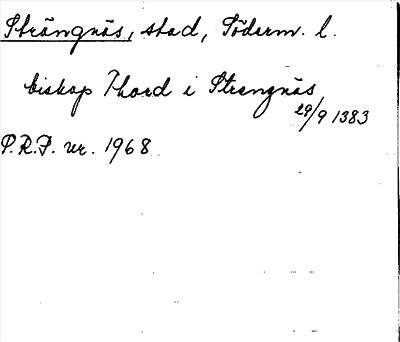 Strängnäs, stad, Söderm. l.
biskop Thord i Strengnäs
29/9 1383
P.R.P. nr. 1968